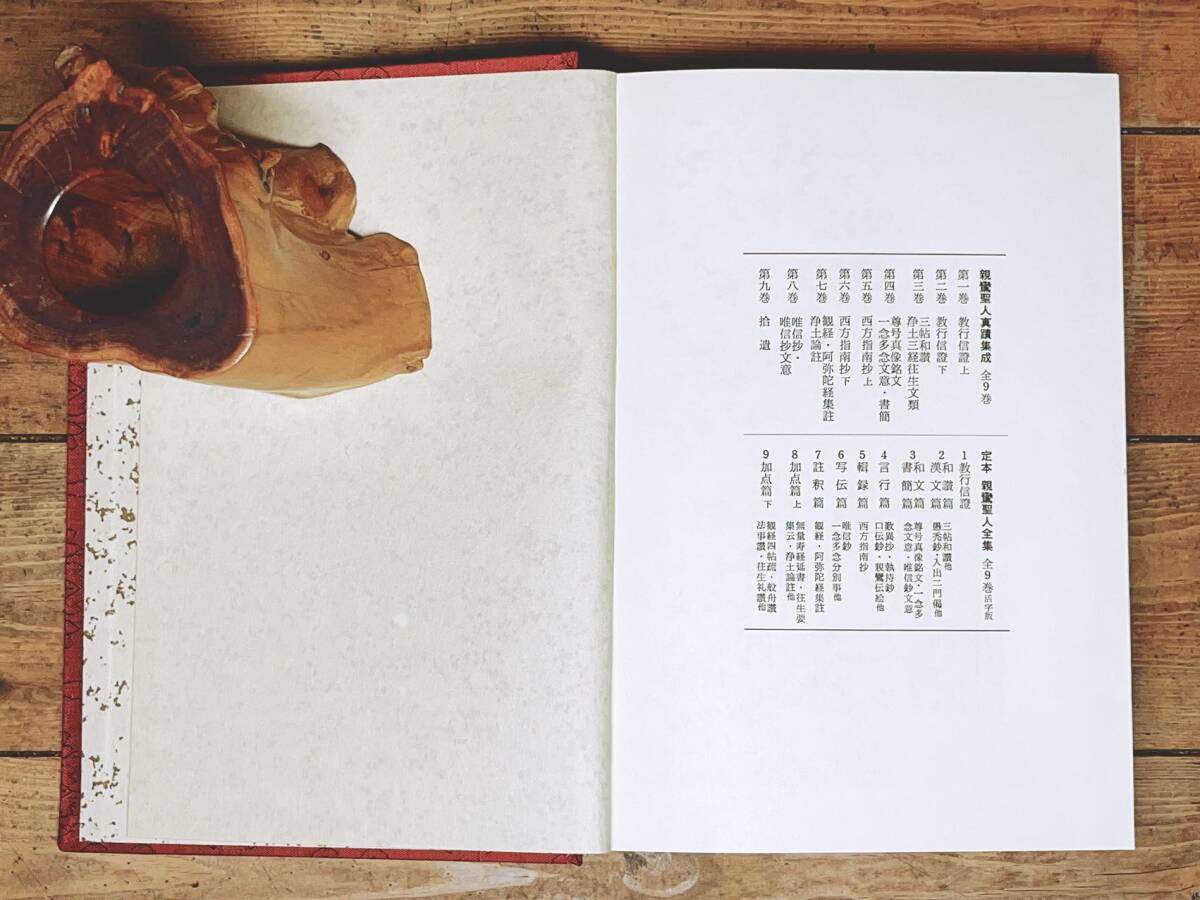 親鸞聖人真蹟集成 全9巻
第一巻 教行信證 上
第二巻 教行信證 下
第三巻 三帖和讃
浄土三経往生文類
第四巻 尊号真像銘文
一念多念文意・書簡
第五巻 西方指南抄 上
第六巻 西方指南抄 下
第七巻 観経・阿弥陀経集註
浄土論註
第八巻 唯信抄・
唯信抄文意
第九巻 拾遺
定本 親鸞聖人全集 全9巻 活字版
1 教行信證
2 和讃篇 三帖和讃他
漢文篇 愚禿鈔・入出二門偈他
3 和文篇 尊号真像銘文・一念多
書簡篇 念文意・唯信鈔文意
4 言行篇 歎異抄・執持鈔
口伝鈔・親鸞伝絵他
5 輯録篇 西方指南抄
6 写伝篇 唯信鈔
一念多念分別事他
7 註釈篇 観経・阿弥陀経集註
8 加点篇 上 無量寿経延書・往生要
集云・浄土論註他
9 加点篇 下 観経四帖疏、般舟讃
法事讃・往生礼讃他